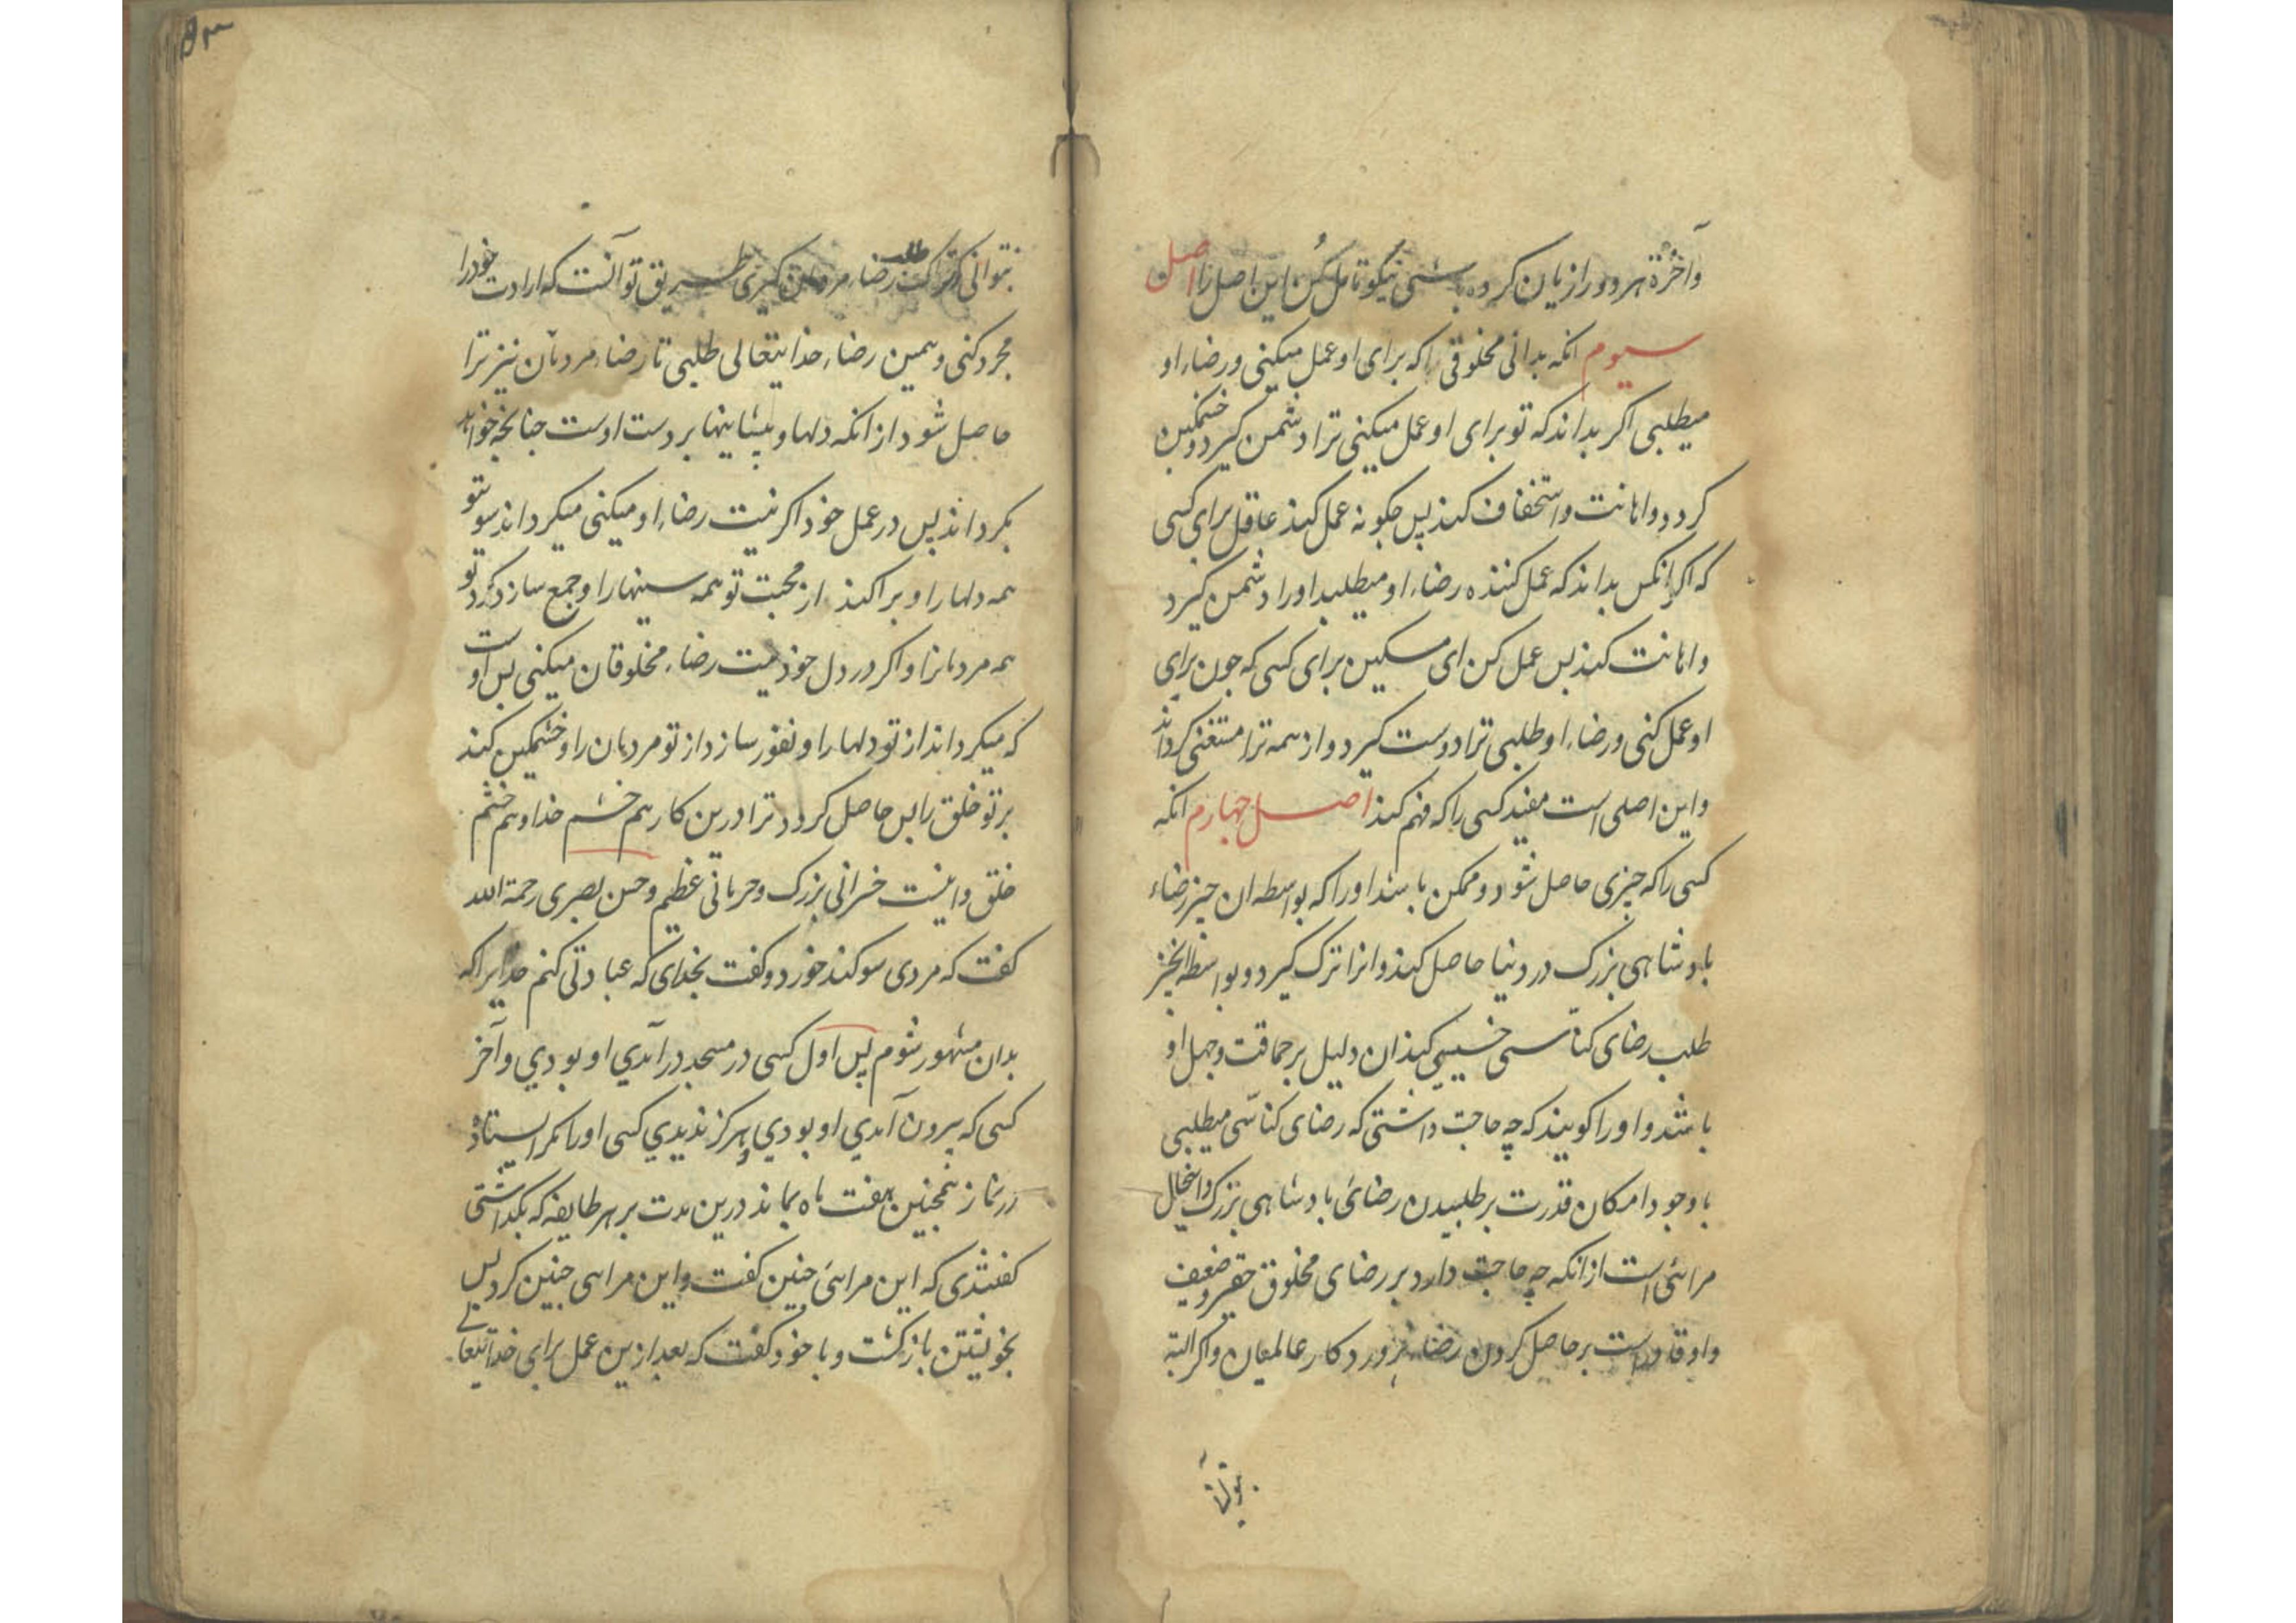 وآخرة هر دو را زیان کرده باشی نیکو تامل کن این اصل را اصل
سیوم انکه بدانی مخلوقی را که برای او عمل میکنی و رضاء او
میطلبی اکر بداند که تو برای او عمل میکنی ترا دشمن کیرد و خشمکین
کردد و اهانت و استخفاف کند پس چکونه عمل کند عاقل برای کسی
که اکر انکس بداند که عمل کننده رضاء او میطلبد او را دشمن کیرد
و اهانت کند بس عمل کن ای مسکین برای کسی که جون برای
او عمل کنی و رضاء او طلبی ترا دوست کیرد و از همه ترا مستغنی کرداند
و این اصلی است مفید کسی را که فهم کند اصل چهارم انکه
کسی را که جیزی حاصل شود و ممکن باشد او را که بواسطه ان جیز رضاء
بادشاهی بزرک در دنیا حاصل کند و انرا ترک کیرد و بواسطه انجیز
طلب رضای کناسی خسیسی کند ان دلیل بر حماقت و جهل او
باشد و او را کویند که چه حاجت داشتی که رضای کناسی میطلبی
با وجود امکان قدرت بر طلبیدن رضائ بادشاهی بزرک و اینحال
مرائی است از انکه چه حاجت دارد بر رضای مخلوق حقیر و ضعیف
و او قادر است بر حاصل کردن رضاء پروردکار عالمیان و اکر البتة
نتوانی که ترک طلب رضاء مردمان کیری طریق تو آنست که ارادت خود را
مجرد کنی و همین رضاء خدایتعالی طلبی تا رضاء مردمان نیز ترا
حاصل شود از انکه دلها و پیشانیها بر دست اوست جنانجه خواهد
بکرداند پس در عمل خود اکر نیت رضاء او میکنی میکرداند سوی تو
همه دلها را و براکند از محبت تو همه سینها را و جمع سازد کرد تو
همه مردمانرا و اکر در دل خود نیت رضاء مخلوقان میکنی بس اوست
که میکرداند از تو دلها را و نفور سازد از تو مردمان را و خشمکین کند
بر تو خلق را بس حاصل کردد ترا درین کار هم خشم خدا و هم خشم
خلق و اینست خسرانی بزرک و حرمانی عظیم و حسن بصری رحمة الله
کفت که مردی سوکند خورد و کفت بخدای که عبادتی کنم خدایرا که
بدان مشهور شوم پس اول کسی در مسجد در آمدی او بودی و آخر
کسی که بیرون آمدی او بودی و هرکز ندیدی کسی او را مکر ایستاده
در نماز همجنین هفت ماه بماند درین مدت بر هر طایفه که بکذاشتی
کفتندی که این مرائی جنین کفت و این مرائی جنین کرد پس
بخویشتن باز کشت و با خود کفت که بعد ازین عمل برای خدایتعالی